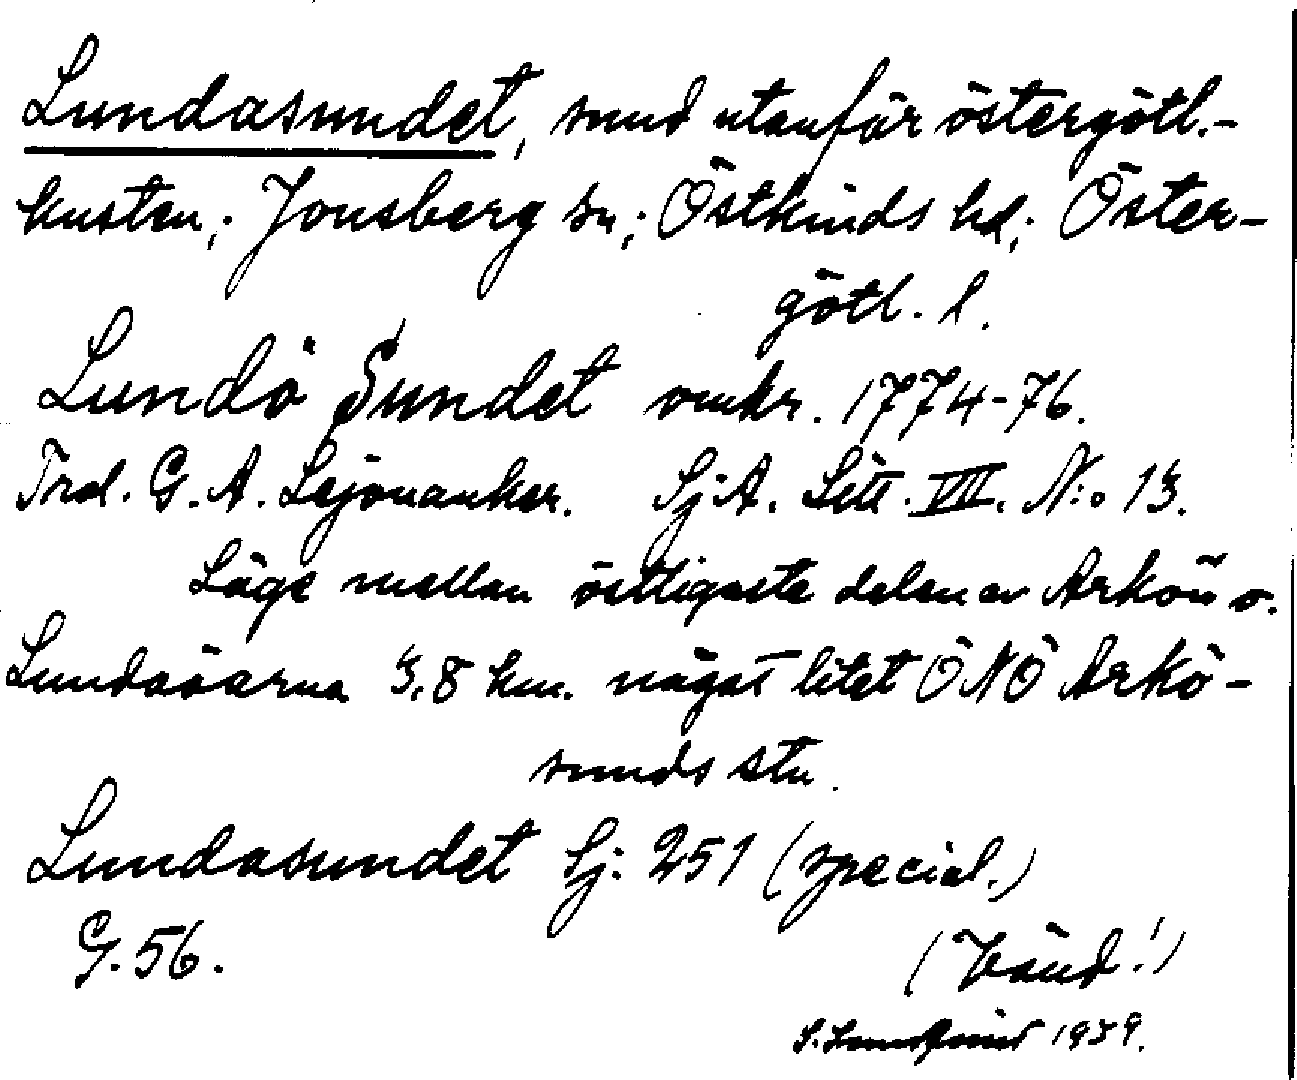 Lundasundet, sund utanför östergötl.-
kusten; Jonsberg sn; Östkinds hd; Öster-
götl. l.
Lundö Sundet omkr. 1774-76.
Trol. G. A. Lejonanker. SjA. Litt. VII. N:o 13.
Läge mellan östligaste delen av Arkön o.
Lundaöarna 3,8 km. något litet ÖNÖ Arkö-
sunds stn.
Lundasundet Sj: 251 (special.)
G. 56.
(Vänd!)
S. 1939.